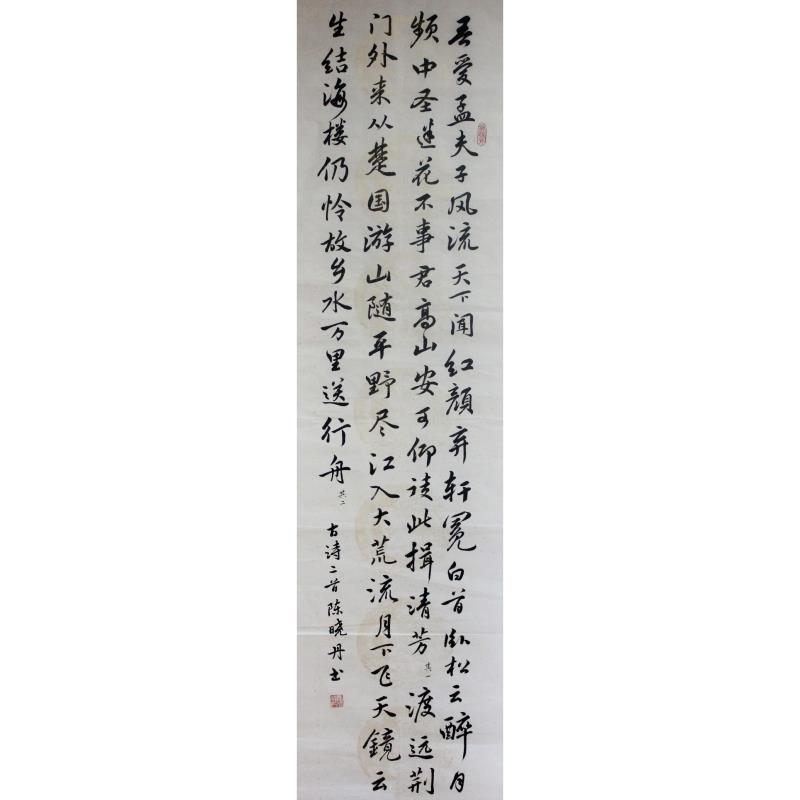 吾爱孟夫子风流天下闻红颜弃轩冕白首卧松云醉月
频中圣迷花不事君高山安可仰徒此揖清芳其一渡远荆
门外来从楚国游山随平野尽江入大荒流月下飞天镜云
生结海楼仍怜故乡水万里送行舟其二
古诗二首陈晓丹书